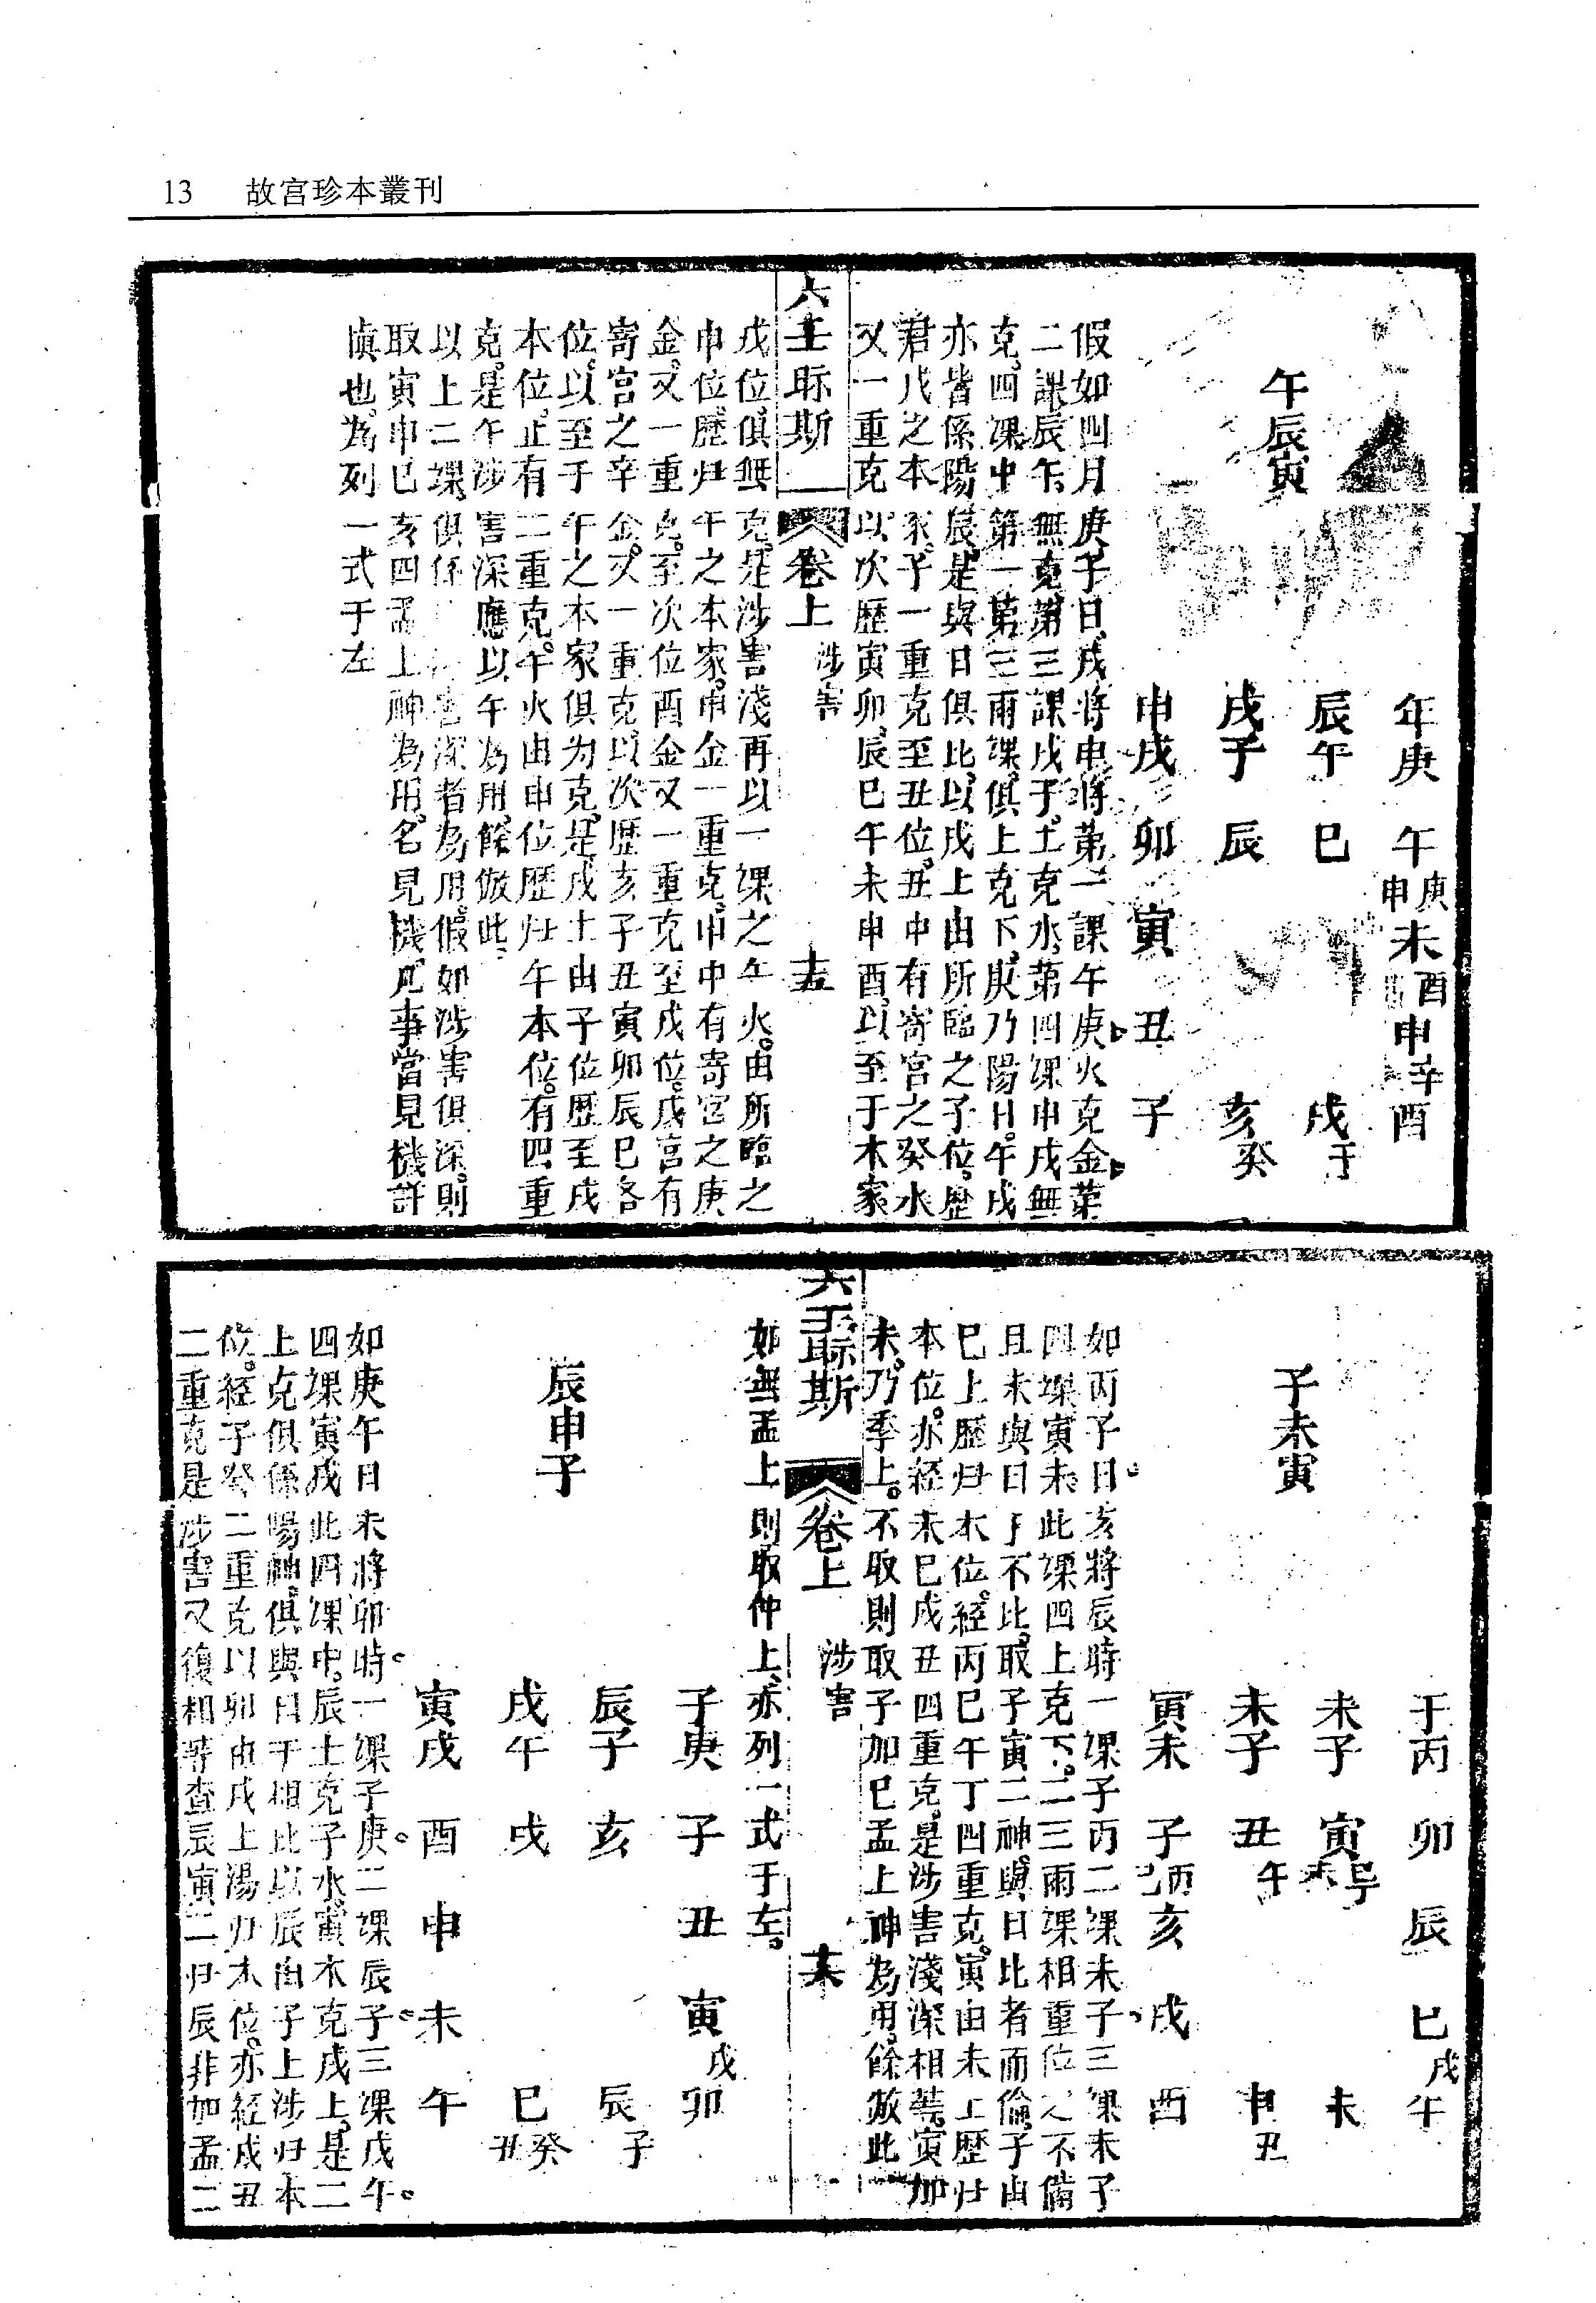 13 故宮珍本叢刊
午辰寅
午庚 午 未 申 酉
庚申 酉 辛
辰午 巳 戌
子
戌子 辰 亥
癸
申戌 卯 寅 丑 子
假如四月庚子日戌將申將第一課午庚火克金第
二課辰午無克第三課戌子土克水第四課申戌無
克四課中第一第三兩課俱上克下庚乃陽日午戌
亦皆係陽辰是與日俱比以戌上由所臨之子位歷
君戌之本家子一重克至丑位丑中有寄宮之癸水
又一重克以次歷寅卯辰巳午未申酉以至于本家
六壬 斯 卷上 涉害 十五
戌位俱無克是涉害淺再以一課之午火由所臨之
申位歷归午之本家申金一重克申中有寄宮之庚
金又一重克至次位酉金又一重克至戌位戌宮有
寄宮之辛金又一重克以次歷亥子丑寅卯辰巳各
位以至于午之本家俱为克是戌土由子位歷至戌
本位止有二重克午火由申位歷归午本位有四重
克是午涉害深應以午為用餘倣此
以上二課俱係 害深者為用假如涉害俱深則
取寅申巳亥四孟上神為用名見機凡事當見機詳
慎也為列一式于左
子未寅
子丙 卯 辰 巳 午
戌
未子 寅 未
未
未子 丑 申
午 丑
寅未 子 亥 戌 酉
丙
如丙子日亥將辰時一課子丙二課未子三課未子
四課寅未此課四上克下二三兩課相重位之不備
且未與日干不比取子寅二神與日比者而倫子由
巳上歷归本位經丙巳午丁四重克寅由未上歷归
本位亦經未巳戌丑四重克是涉害淺深相等寅加
未乃季上不取則取子加巳孟上神為用餘倣此
六壬 斯 卷上 涉害 十六
如無孟上則取仲上亦列一式于左
辰申子
子庚 子 丑 寅 卯
戌
辰子 亥 辰
子
戌午 戌 巳
癸丑
寅戌 酉 申 未 午
如庚午日未將卯時一課子庚二課辰子三課戌午
四課寅戌此四課中辰土克子水寅木克戌上是二
上克俱係陽神俱與日干相比以辰由子上涉归本
位經子癸二重克以卯由戌上湯归木位亦經戌丑
二重克是涉害又復相等查辰寅二归辰非加孟二